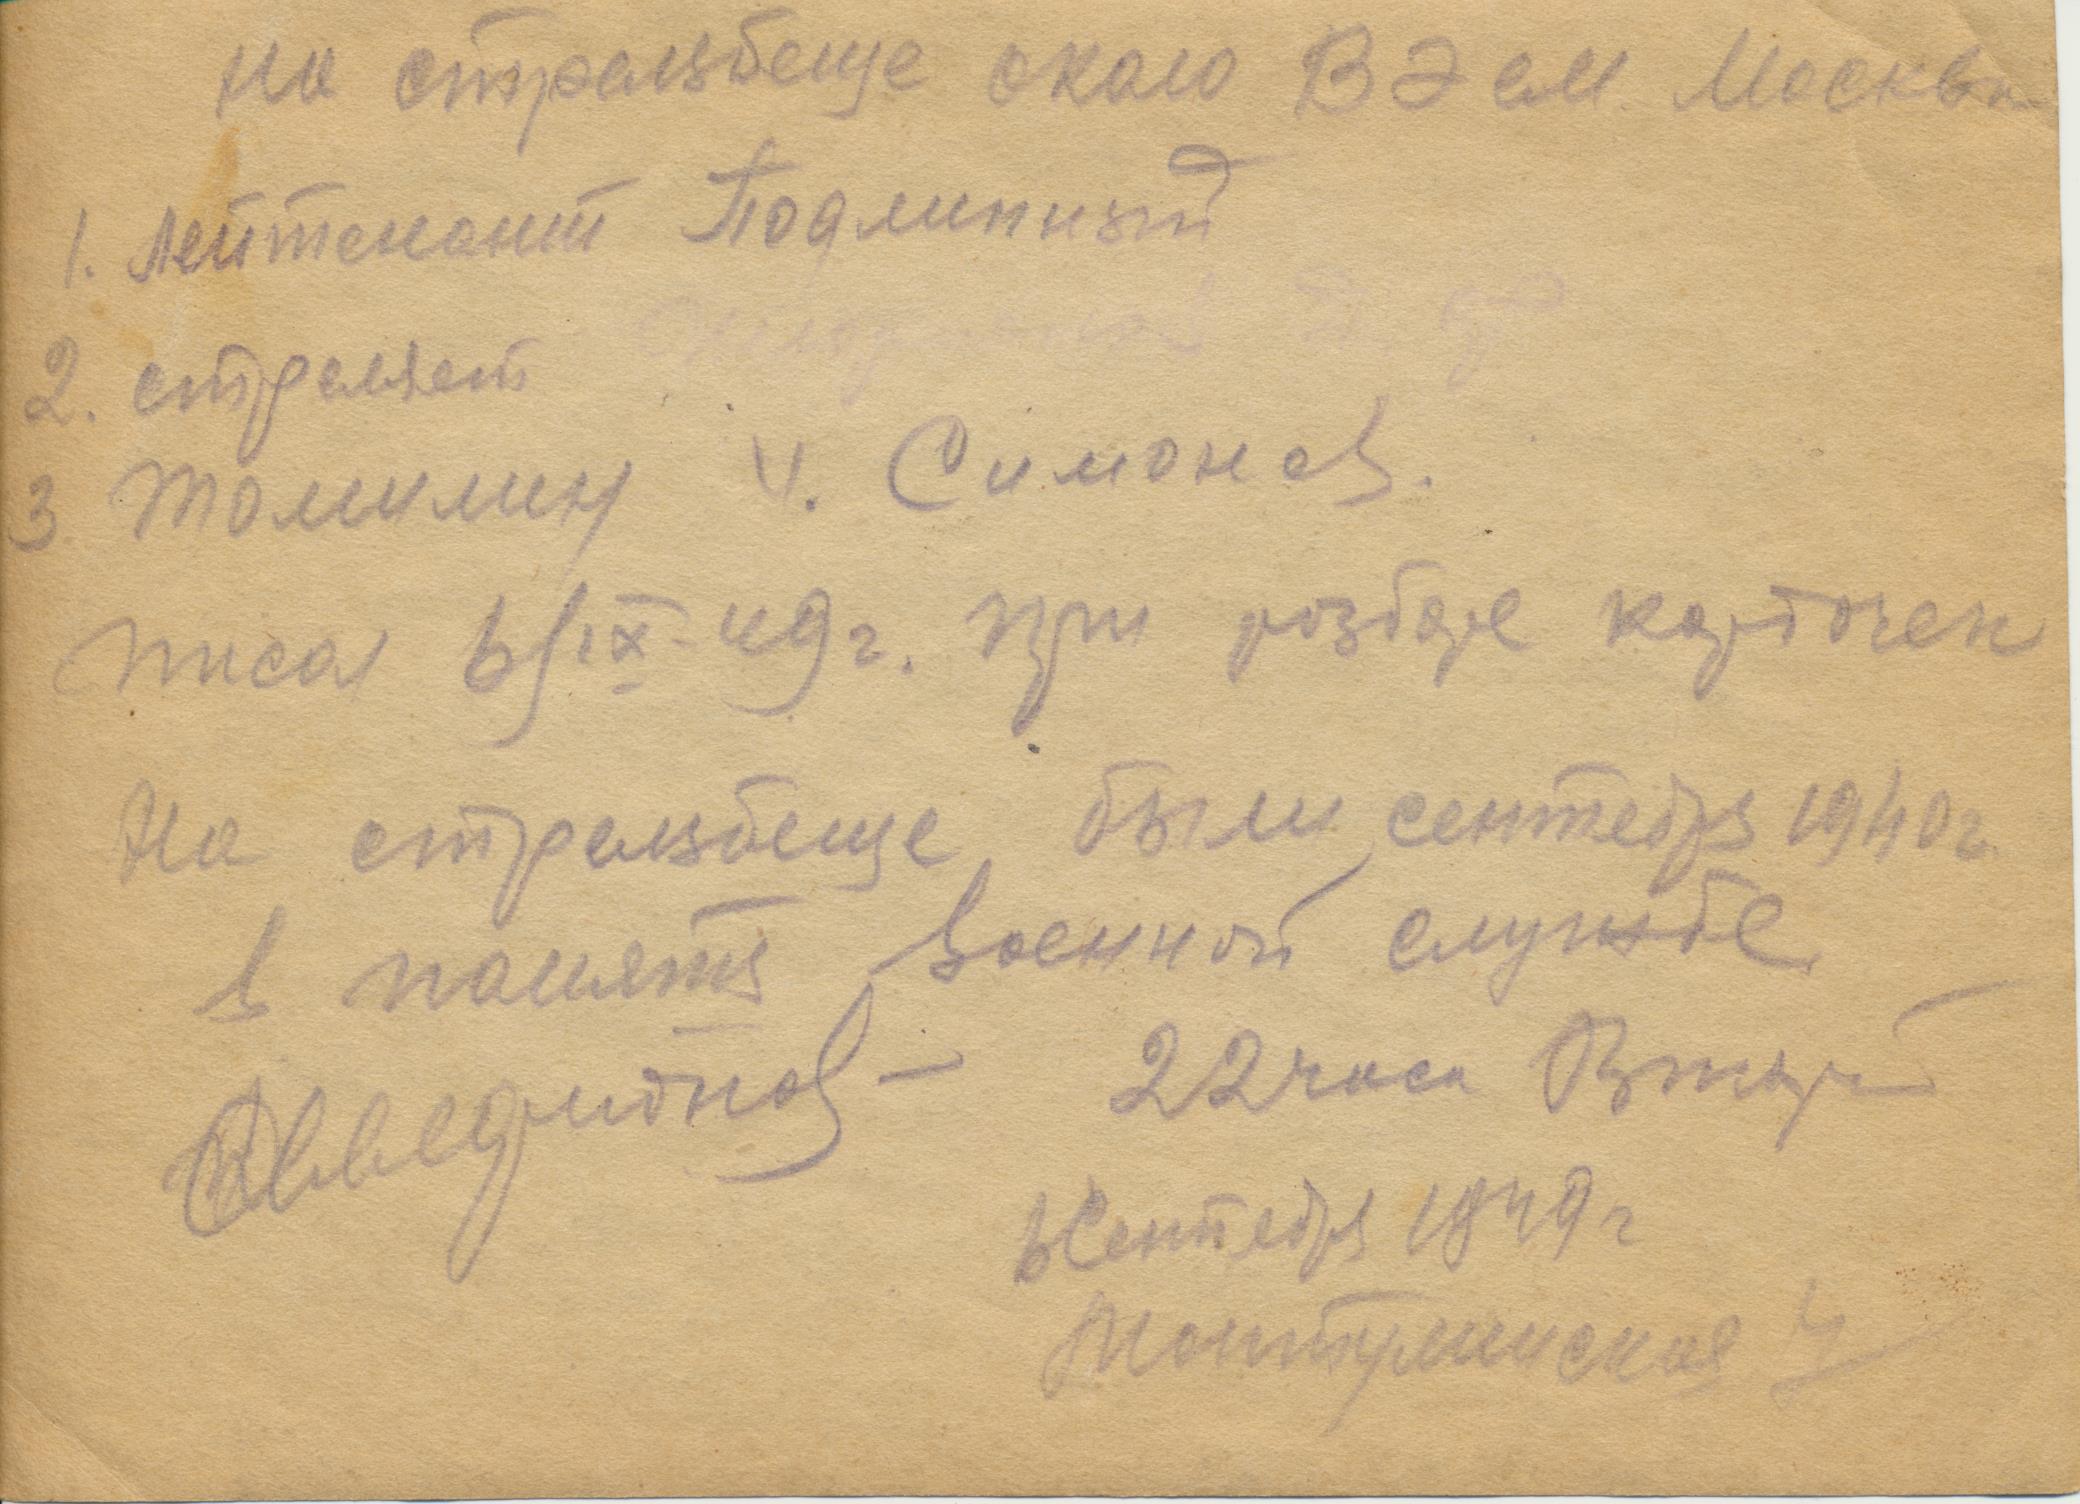 на стрельбеще около ВЭем. Москва
1. Лейтенант Подлипный
2. стреляет
3 Томилин и. Симонов.
писал 6/IX-49г. при разборе карточек
На стрельбеще были сентябрь 1940г.
в память военной службе
22 часа
6 Сентября 1949г